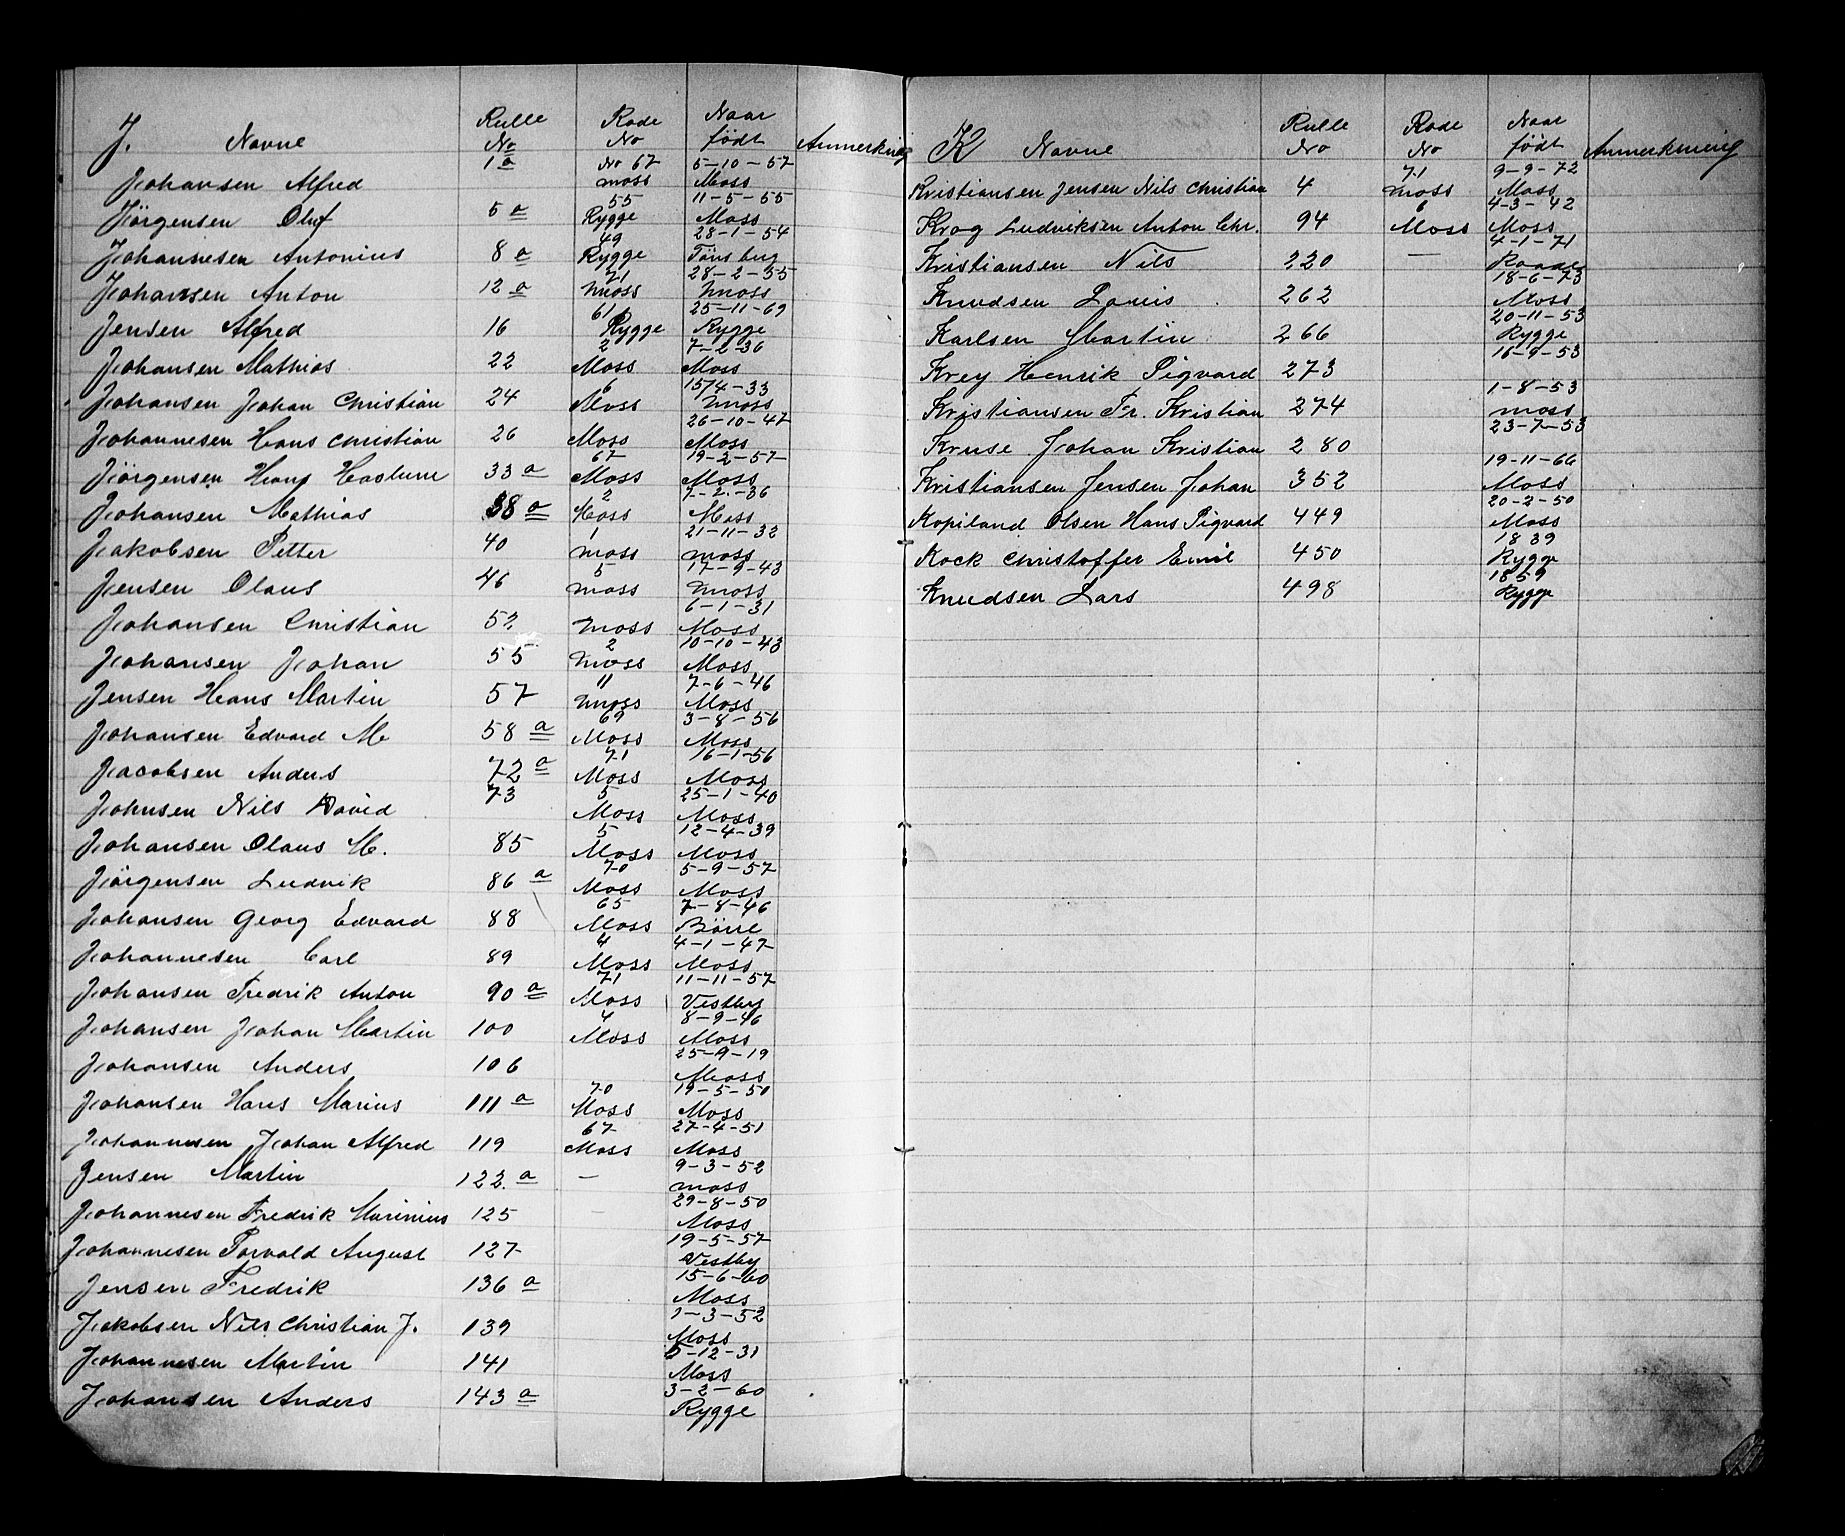 J. Navne Rulle No Rode No Naar født Anmerkning
Johansen Alfred 1 a No 67 moss 5-10-57 Moss
Jörgensen Oluf 5 a 55 Rygge 11-5-55 Moss
Johannesen Antonius 8 a 49 Rygge 28-1-54 Tönsberg
Johansen Anton 12 a 71 moss 28-2-55 moss
Jensen Alfred 16 61 Rygge 25-11-69 Rygge
Johansen Mathias 22 2 Moss 7-2-36 Moss
Johansen Johan Christian 24 6 Moss 15/4-33 moss
Johannesen Hans Christian 26 Moss 26-10-47 Moss
Jörgensen Hans Haslum 33 a 67 Moss 19-2-57 Moss
Johansen Mathias 38 a 2 Moss 7-2-36 Moss
Jakobsen Petter 40 1 moss 21-11-32 moss
Jensen Olaus 46 5 moss 17-9-43 moss
Johansen Christian 52 moss 6-1-31 Moss
Johansen Johan 55 2 moss 10-10-43 Moss
Jensen Hans Martin 57 11 moss 7-6-46 Moss
Johansen Edvard M. 58 a 69 Moss 3-8-56 Moss
Jacobsen Anders 72 a 71 Moss 16-1-56 Moss
Johnsen Nils David 73 5 Moss 25-1-40 Moss
Johansen Olaus M. 85 5 Moss 12-4-39 Moss
Jörgensen Ludvik 86 a 70 Moss 5-9-57 Moss
Johansen Georg Edvard 88 65 Moss 7-8-46 Börre
Johannesen Carl 89 4 Moss 4-1-47 Moss
Johansen Fredrik Anton 90 a 71 Moss 11-11-57 Vestby
Johansen Johan Martin 100 4 Moss 8-9-46 Moss
Johansen Anders 106 25-9-19 Moss
Johansen Hans Marius 111 a 70 Moss 19-5-50 Moss
Johannesen Johan Alfred 119 67 Moss 27-4-51 Moss
Jensen Martin 122 a — 9-3-52 moss
Johannesen Fredrik Marinius 125 — 29-8-50 Moss
Johannesen Torvald August 127 19-5-57 Vestby
Jensen Fredrik 136 a 15-6-60 Moss
Jakobsen Nils Christian J. 139 1-3-52 Moss
Johannesen Martin 141 5-12-31 Moss
Johansen Anders 143 a 3-2-60 Rygge
K Navne Rulle No Rode No Naar født Anmerkning
Kristiansen Jensen Nils Christian 4 71 moss 9-9-72 Moss
Krog Ludviksen Anton Chr. 94 6 Moss 4-3-42 Moss
Kristiansen Nils 220 — 4-1-71 Raade
Knudsen Louis 262 18-6-73 Moss
Karlsen Martin 266 20-11-53 Rygge
Krey Henrik Sigvard 273 16-9-53
Kristiansen Fr. Kristian 274 1-8-53 moss
Kruse Johan Kristian 280 23-7-53
Kristiansen Jensen Johan 352 19-11-66 Moss
Kopiland Olsen Hans Sigvard 449 20-2-50 Moss
Kock Christoffer Emil 450 1839 Rygge
Knudsen Lars 498 1859 Rygge